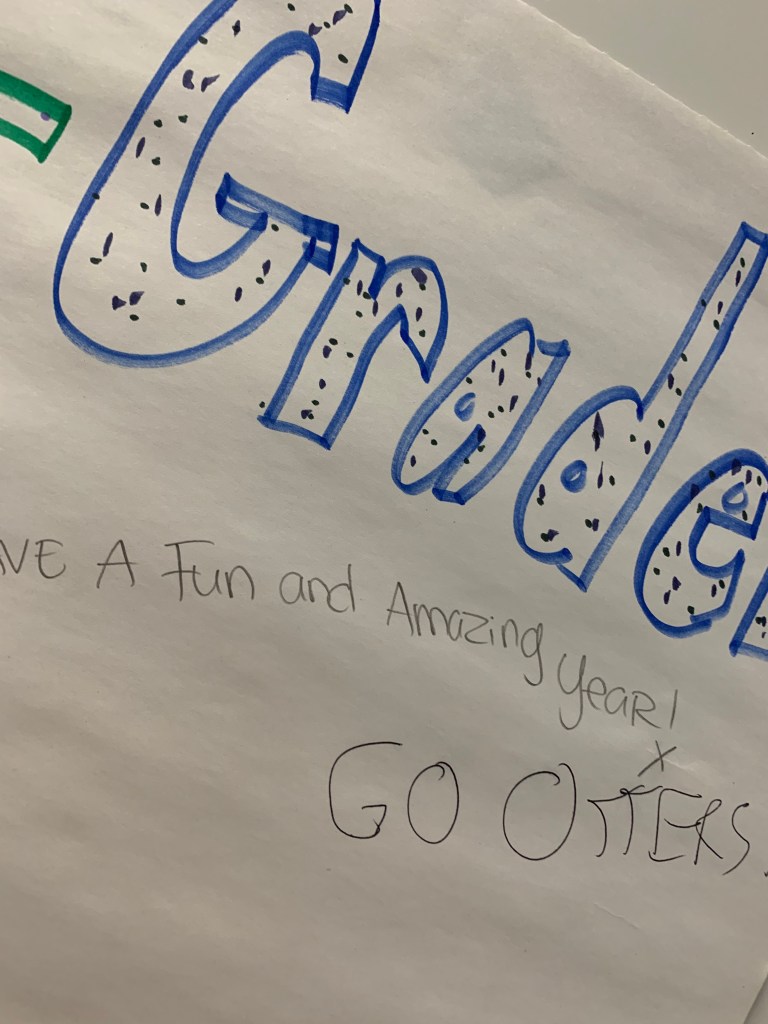 Grader
AVE A Fun and Amazing YEAR!
x
GO OTTERS.